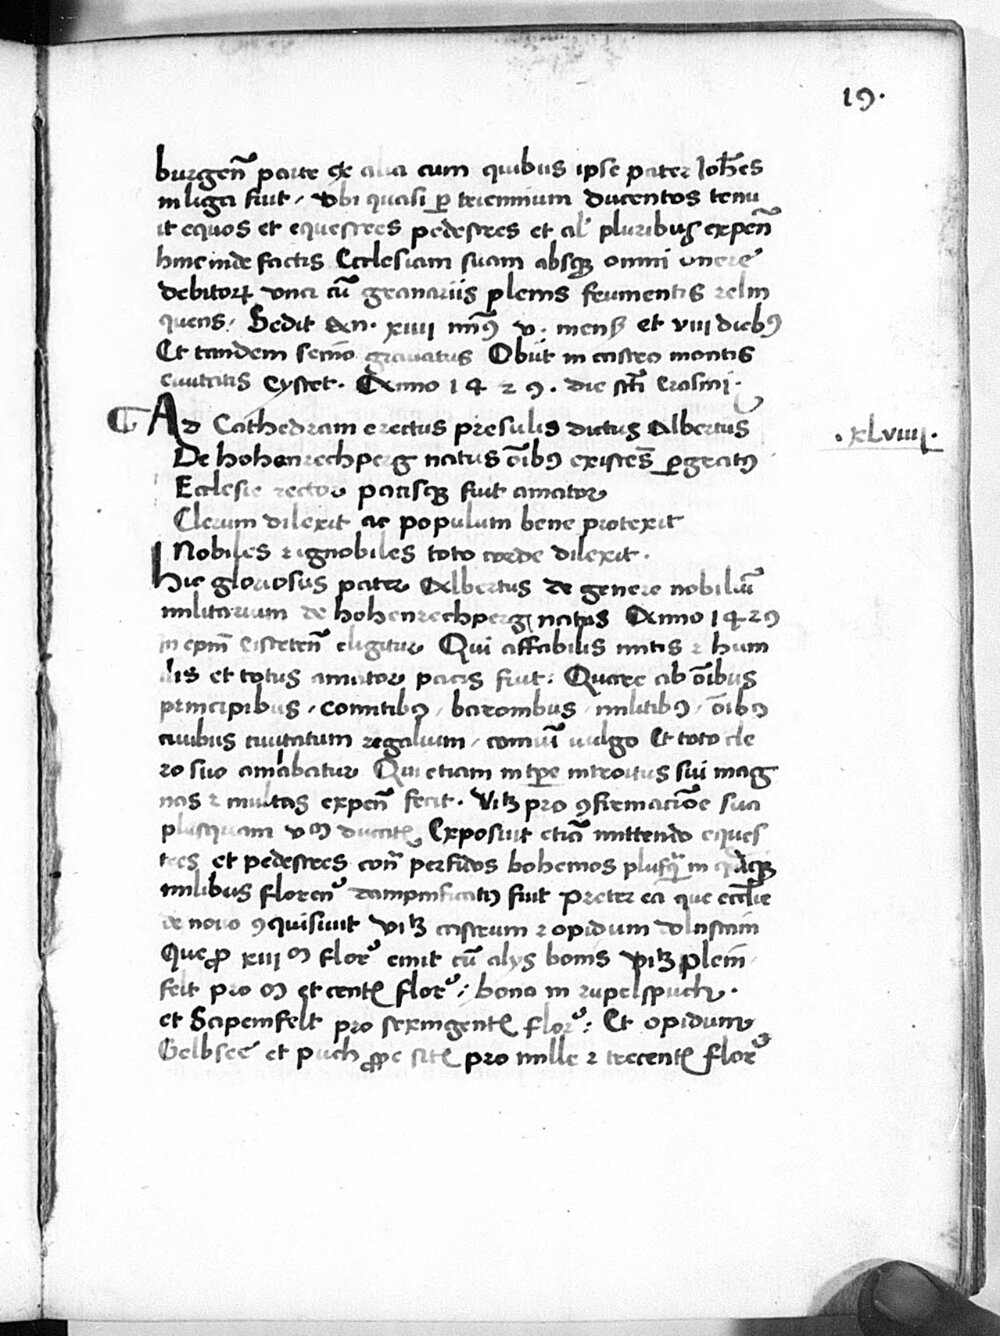 19.
burgen̄ parte ex alia cum quibus ipse pater Joh̄es
in liga fuit / vbi quasi ꝑ triennium ducentos tenu
it equos et equestres pedestres et al' pluribus expen̄
hincinde factis Ecclesiam suam absqꝫ omni onere
debitorꝝ vna cū granariis plenis frumentis relin
quens / Sedit An. xiiii min⁹ v. mens̄ et viii dieb⁹
Et tandem senio grauatus Obiit in castro montis
ciuitatis Eystet. Anno 1429. die sct̄i Erasmi.
¶ Ad Cathedram erectus presulis dictus Albertus
.xLviiii.
De hohenrechperg natus oīb⁹ existēs ꝑgrat⁹
Ecclesie rector pacisqꝫ fuit amator
Clerum dilexit ac populum bene protexit
Nobiles ⁊ ignobiles toto corde dilexit.
hic gloriosus pater Albertus de genere nobiliū
militarium de hohenrechperg natus Anno 1429
in epm̄ Eisteten̄ eligitur Qui affabilis mitis ⁊ humi
lis et totus amator pacis fuit: Quare ab oībus
principibus / comitib⁹ / baronibus / militib⁹ / oīb⁹
ciuibus ciuitatum regalium / comūi uulgo Et toto cle
ro suo amabatur Qui etiam in tp̄e introitus sui mag
nas ⁊ multas expen̄ fecit. Vitꝫ pro ꝯfirmacōe sua
plusquam v m ducatꝭ Exposuit etiā mittendo eques
tres et pedestres contr̄ perfidos bohemos plusq̄ in
milibus floren̄ dampnificat⁹ fuit Preter ea que eccl̄ie
de nouo ꝯquisiuit Vitꝫ castrum ⁊ opidum dolnstain
Que ꝓ xiii m flor̄ emit cū alys bonis vitꝫ plein
felt pro m et centꝭ flor̄: bona in rupelspuch.
et Sapenfelt pro sexingentꝭ flor̄: Et opidum
Gelbsee et puch ꝓpe sitꝭ pro mille ⁊ trecentꝭ flor̄